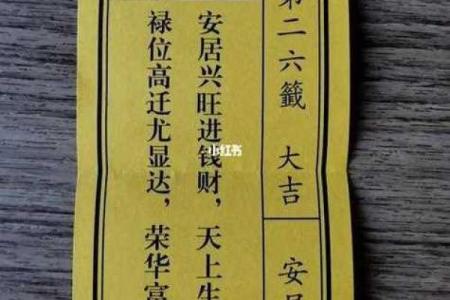 第二六籤 大吉
安居兴旺进钱财，天上生
禄位高迁尤显达，荣华富
小红书